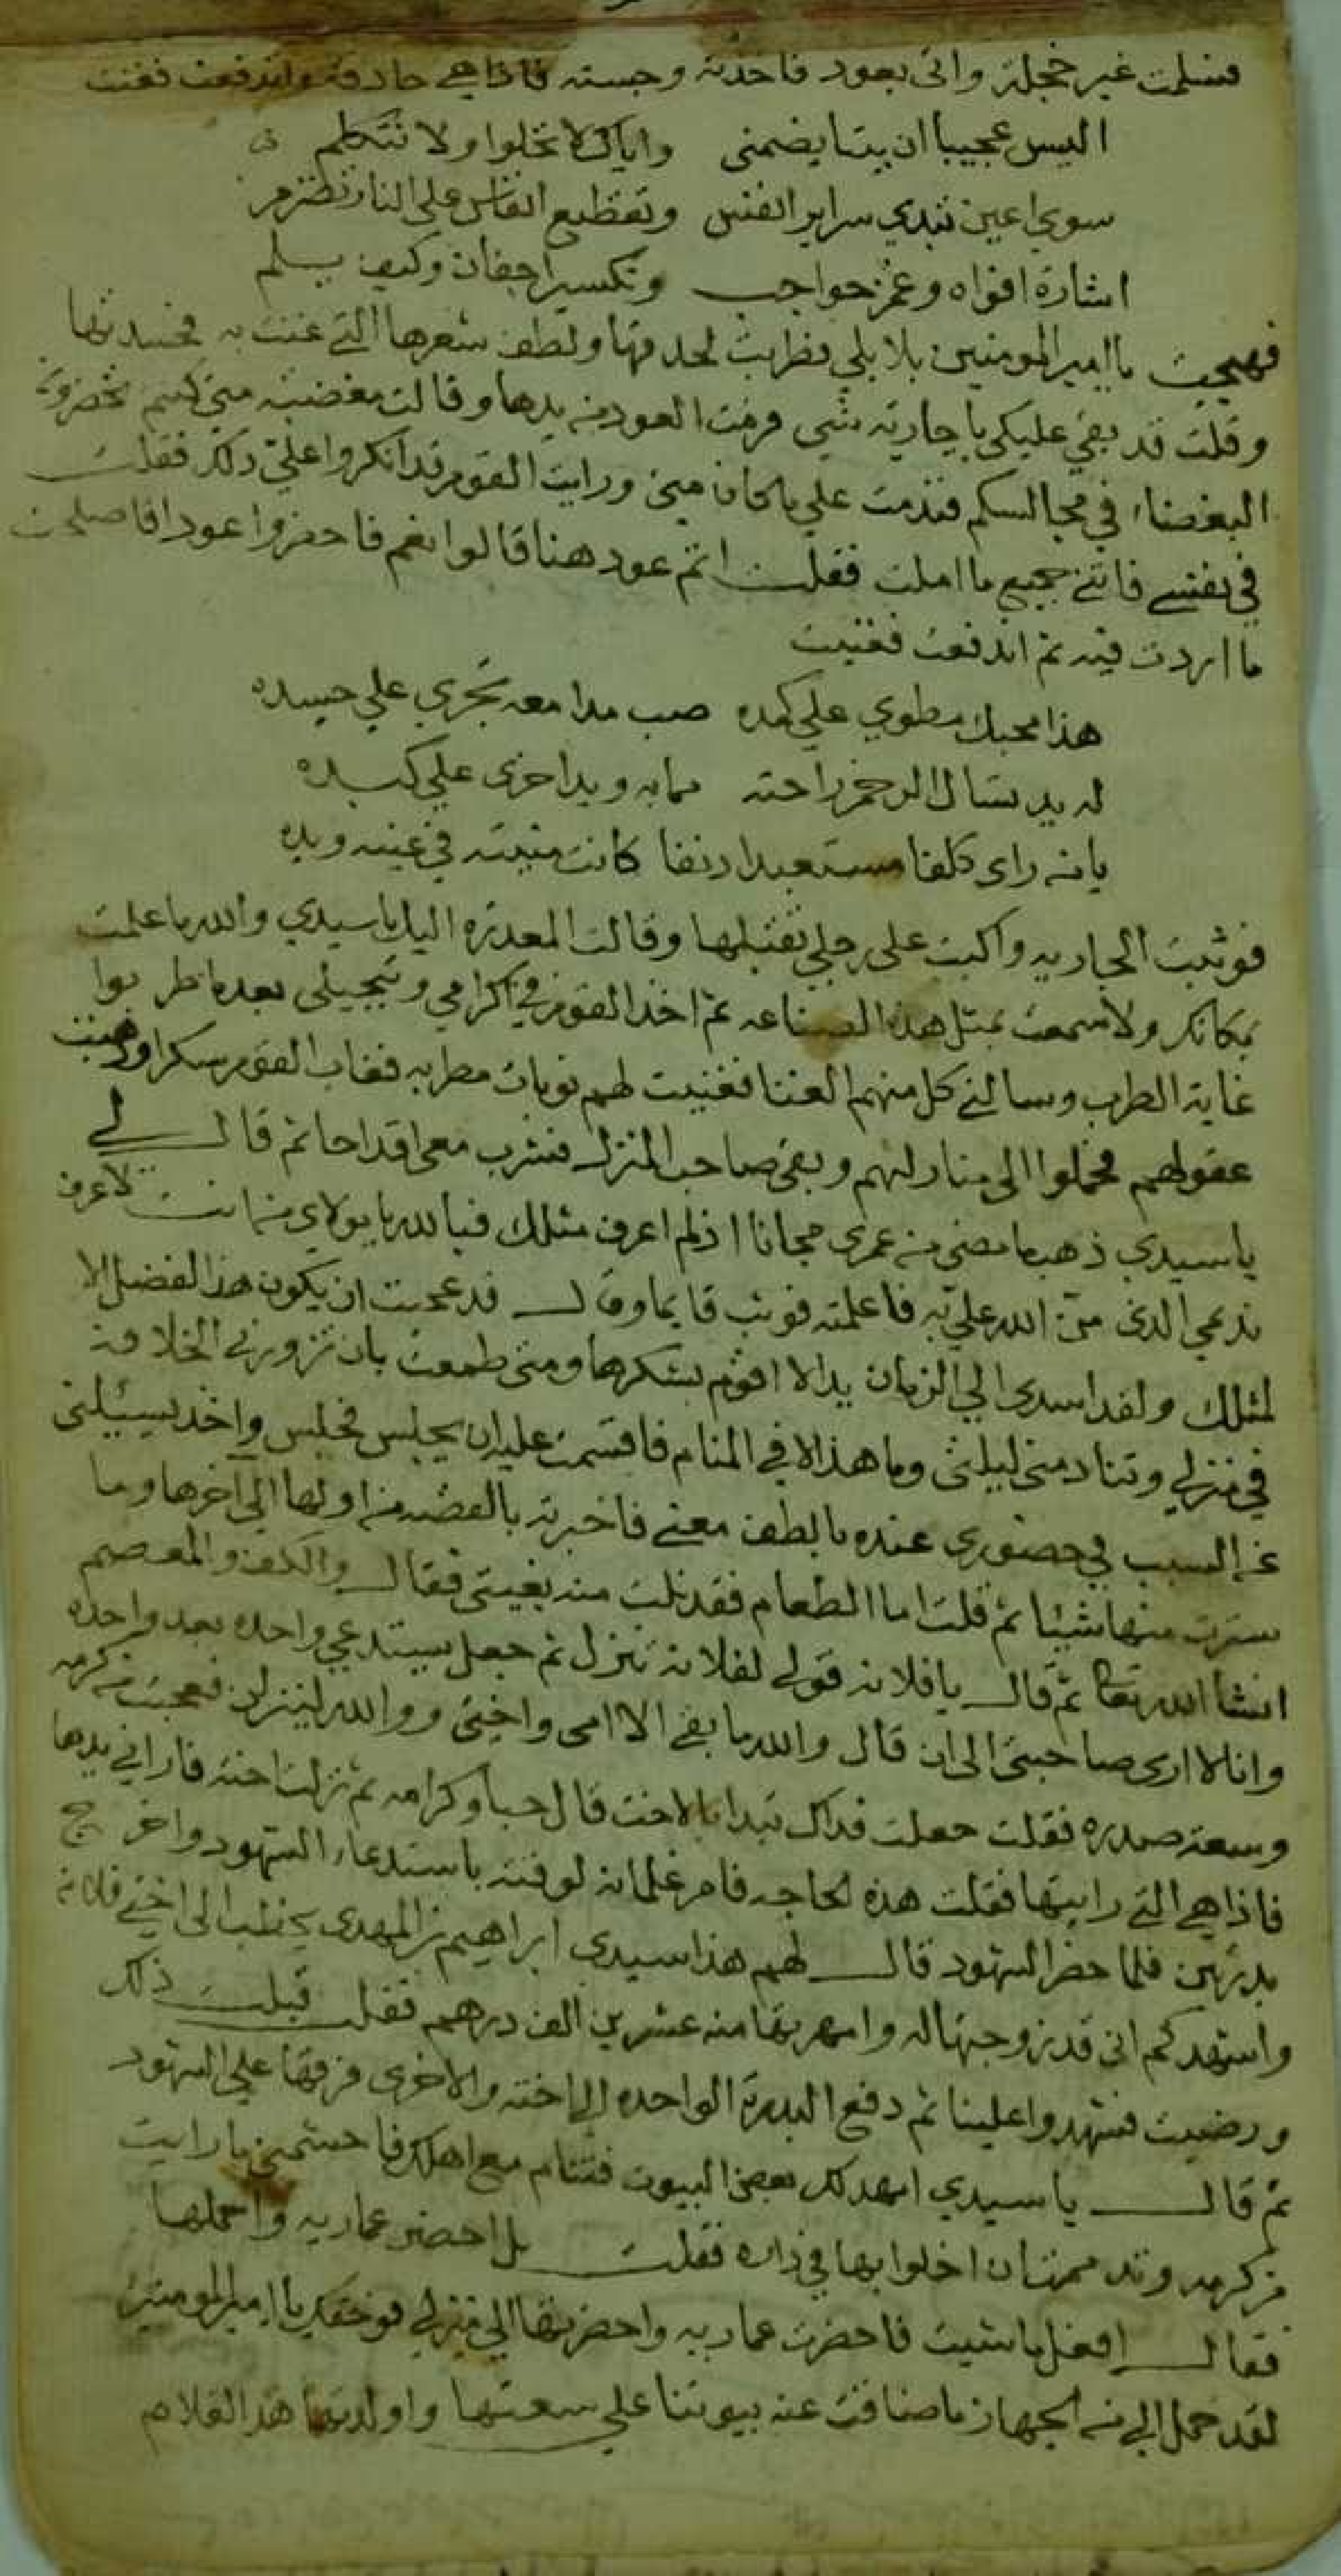 فسلمت غير خجلة واتى بعود فاخذته وجسته فاذا هي حاذقة واندفعت فغنت
اليس عجيبا ان بيتا يضمني واياك لا نخلوا ولا نتكلم
سوي اعين تبدي سراير انفس وتقطيع انفاس علي النار تضرم
اشارة افواه وغمز حواجب وتكسير اجفان وكيف يسلم
فهيجت يا امير المومنين بلابلي فطربت لحذقها ولطف شعرها التي غنت به فحسدتها
وقلت قد بقي عليكي يا جاريه شي فرمت العود من يدها وقالت مغضبه متي كنتم تحضروا
البغضاء في مجالسكم فندمت علي ما كان مني ورايت القوم قد انكروا علي ذلك فقلت
في نفسي فاتني جميع ما املت فقلت اثم عود هنا قالوا نعم فاحضروا عودا فاصلحت
ما اردت فيه ثم اندفعت فغنيت
هذا محبك مطوي علي كمده صب مدامعه تجري علي جسده
له يد تسال الرحمن راحته مما به ويد اخرى علي كبده
يا من راى كلفا مستعبدا دنفا كانت منيته في عينه ويده
فوثبت الجاريه واكبت على رجلي تقبلها وقالت المعذره اليك يا سيدي والله ما علمت
بمكانك ولا سمعت بمثل هذه الصناعه ثم اخذ القوم في اكرامي وتبجيلي بعد ما طربوا
غاية الطرب وسالني كل منهم الغنا فغنيت لهم نوبات مطربه فغاب القوم سكرا وذهبت
عقولهم فحملوا الى منازلهم وبقي صاحب المنزل فشرب معي اقداحا ثم قال لي
يا سيدي ذهب ما مضى من عمري مجانا اذ لم اعرف مثلك فبالله يا مولاي من انت لاعرف
نديمي الذي من الله علي به فاعلمته فوثب قايما وقال قد عجبت ان يكون هذا الفضل الا
لمثلك ولقد اسدى الي الزمان يدا لا اقوم بشكرها ومتى طمعت بان تزورني الخلافة
في منزلي وتنادمني ليلتي وما هذا الا في المنام فاقسمت عليه ان يجلس فجلس واخذ يسيلني
عن السبب في حضوري عنده بالطف معني فاخبرته بالقضيه من اولها الي اخرها وما
سترت منها شيئا ثم قلت اما الطعام فقد نلت منه بغيتي فقال والكف والمعصم
انشا الله تعالى ثم قال يا فلانه قولي لفلانه تنزل ثم جعل يستدعي واحده بعد واحده
وانا لا ارى صاحبتي الى ان قال والله ما بقي الا امي واختي ووالله لينزلن فعجبت من كرمه
وسعة صدره فقلت جعلت فداك تبدا بالاخت قال حبا وكرامه ثم نزلت اخته فاراني يدها
فاذا هي التي رايتها فقلت هذه الحاجه فامر غلمانه لوقته باستدعاء الشهود واخرج
بدرتين فلما حضر الشهود قال لهم هذا سيدي ابراهيم بن المهدي يخطب الى اختي فلانه
واشهدكم اني قد زوجتها له وامهرتها منه عشرين الف درهم فقلت قبلت ذلك
ورضيت فشهدوا علينا ثم دفع البدرة الواحده الي اخته والاخرى فرقها علي الشهود
ثم قال يا سيدي امهد لك بعض البيوت فتنام مع اهلك فاحشمني ما رايت
من كرمه ان اخلوا بها في داره فقلت بل احضر عماريه واحملها
فقال افعل ما شيت فاحضرت عماريه واحضرتها الي منزلي فوحقك يا امير المومنين
لقد حمل الي من الجهاز ما ضاقت عنه بيوتنا علي سعتها واولدتها هذا الغلام